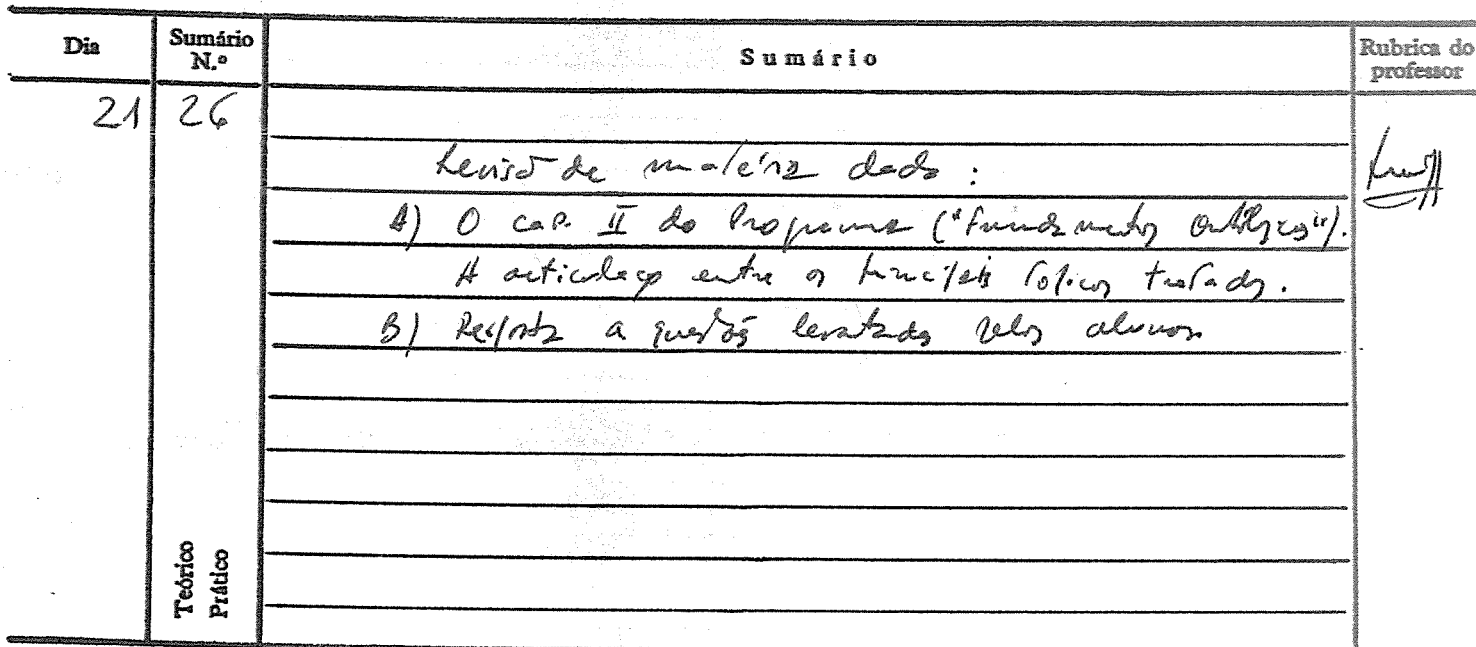 Dia Sumário N.º Sumário Rubrica do professor
21 26
Revisão de matéria dada:
A) O cap. II do Programa ("Fundamentos Ontológicos").
A articulação entre os principais tópicos tratados.
B) Resposta a questões levantadas pelos alunos
Teórico
Prático